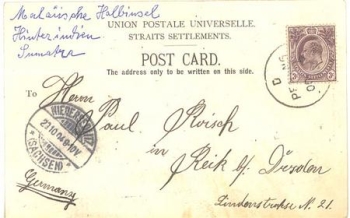 Malaiische Halbinsel
Hinterindien
Sumatra
UNION POSTALE UNIVERSELLE.
STRAITS SETTLEMENTS.
POST CARD.
The address only to be written on this side.
To
Herrn
Paul
in
Reik b/ Dresden
Lindenstrasse N. 21.
Germany
NIEDERSEDLITZ
22.10.04
(SACHSEN)